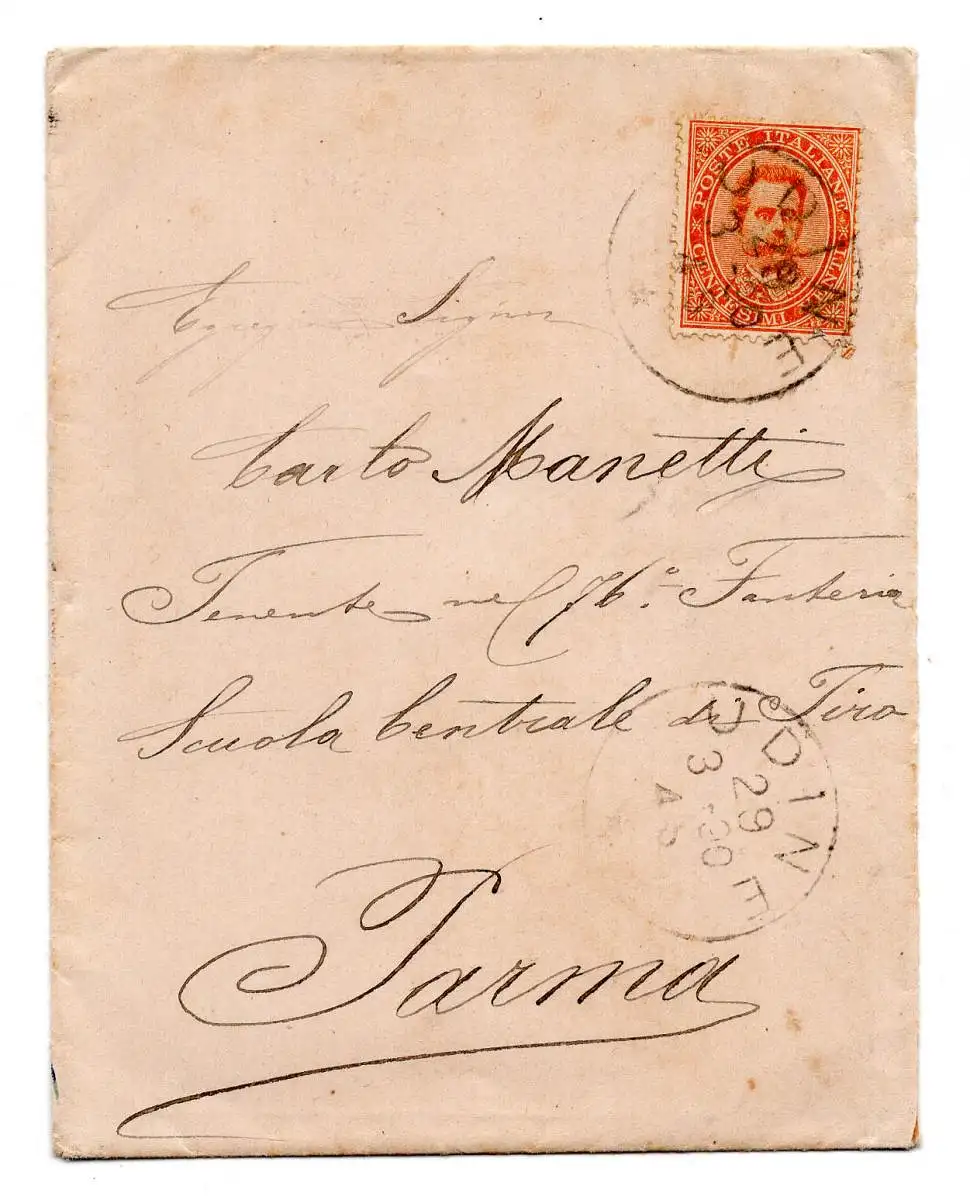 POSTE ITALIANE
CENTESIMI
UDINE
Signor
Carlo Manetti
Tenente nel 76.º Fanteria
Scuola Centrale di Tiro
UDINE
29
3 -90
Parma